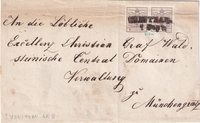 An die Löbliche
Excellenz Christian Graf Wald-
steinische Central Domainen
Verwaltung
zu
Münchengrätz